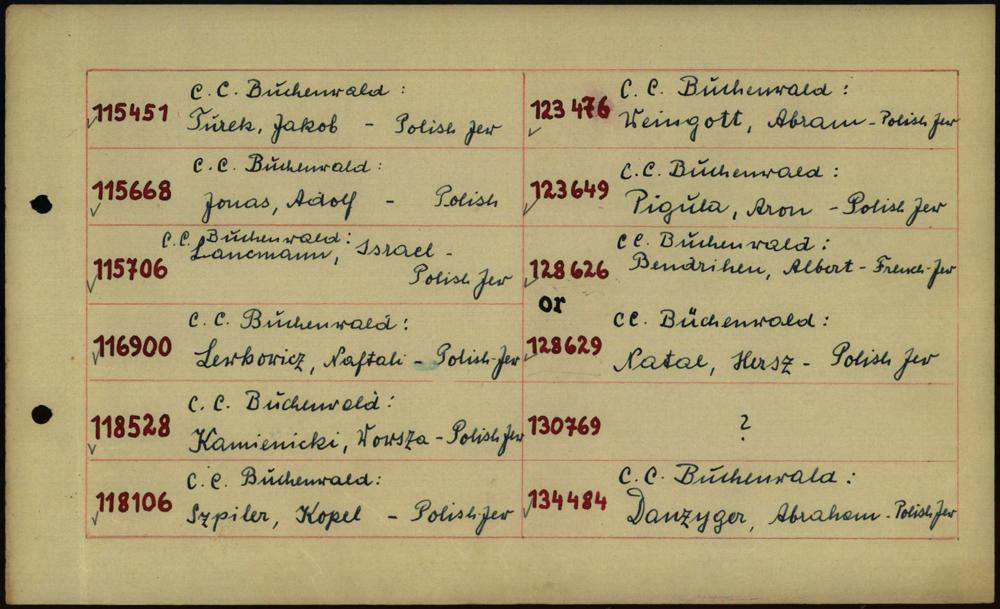 115451 C.C. Buchenwald:
Turek, Jakob - Polish Jew
115668 C.C. Buchenwald:
Jonas, Adolf - Polish
115706 C.C. Buchenwald:
Lancmann, Israel -
Polish Jew
116900 C.C. Buchenwald:
Lerkowicz, Naftali - Polish-Jew
118528 C.C. Buchenwald:
Kamienicki, Worsza - Polish Jew
118106 C.C. Buchenwald:
Szpiler, Kopel - Polish-Jew
123476 C.C. Buchenwald:
Weingott, Abram - Polish Jew
123649 C.C. Buchenwald:
Pigula, Aron - Polish Jew
128626 CC. Buchenwald:
Bendrihen, Albert - French-Jew
or
128629 CC. Buchenwald:
Natal, Hersz - Polish Jew
130769 ?
134484 C.C. Buchenwald:
Danzyger, Abraham - Polish Jew